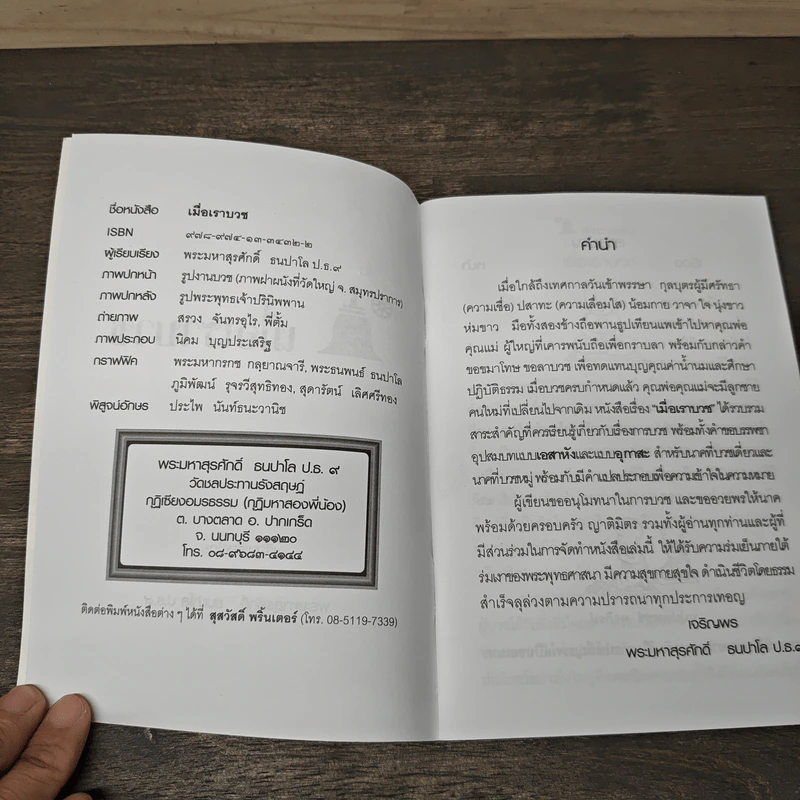 ชื่อหนังสือ เมื่อเราบวช
ISBN ๙๗๘-๙๗๔-๑๓-๓๔๓๒-๒
ผู้เรียบเรียง พระมหาสุรศักดิ์ ธนปาโล ป.ธ.๙
ภาพปกหน้า รูปงานบวช (ภาพฝาผนังที่วัดใหญ่ จ. สมุทรปราการ)
ภาพปกหลัง รูปพระพุทธเจ้าปรินิพพาน
ถ่ายภาพ สรวง จันทรอุไร, พี่ตั้ม
ภาพประกอบ นิคม บุญประเสริฐ
กราฟฟิค พระมหากรกช กลฺยาณจารี, พระธนพนธ์ ธนปาโล
ภูมิพัฒน์ รุจรวีสุทธิทอง, สุดารัตน์ เลิศศรีทอง
พิสูจน์อักษร ประไพ นันท์ธนะวานิช
พระมหาสุรศักดิ์ ธนปาโล ป.ธ. ๙
วัดชลประทานรังสฤษฎ์
กุฏิเชียงอมรธรรม (กุฏิมหาสองพี่น้อง)
ต. บางตลาด อ. ปากเกร็ด
จ. นนทบุรี ๑๑๑๒๐
โทร. ๐๘-๙๖๘๓-๔๑๔๔
ติดต่อพิมพ์หนังสือต่าง ๆ ได้ที่ สุสวัสดิ์ พริ้นเตอร์ (โทร. 08-5119-7339)
คำนำ
เมื่อใกล้ถึงเทศกาลวันเข้าพรรษา กุลบุตรผู้มีศรัทธา
(ความเชื่อ) ปสาทะ (ความเลื่อมใส) น้อมกาย วาจา ใจ นุ่งขาว
ห่มขาว มือทั้งสองข้างถือพานธูปเทียนแพเข้าไปหาคุณพ่อ
คุณแม่ ผู้ใหญ่ที่เคารพนับถือเพื่อกราบลา พร้อมกับกล่าวคำ
ขอขมาโทษ ขอลาบวช เพื่อทดแทนบุญคุณค่าน้ำนมและศึกษา
ปฏิบัติธรรม เมื่อบวชครบกำหนดแล้ว คุณพ่อคุณแม่จะมีลูกชาย
คนใหม่ที่เปลี่ยนไปจากเดิม หนังสือเรื่อง "เมื่อเราบวช" ได้รวบรวม
สาระสำคัญที่ควรเรียนรู้เกี่ยวกับเรื่องการบวช พร้อมทั้งคำขอบรรพชา
อุปสมบทแบบเอสาหังและแบบอุกาสะ สำหรับนาคที่บวชเดี่ยวและ
นาคที่บวชหมู่ พร้อมกับมีคำแปลประกอบเพื่อความเข้าใจในความหมาย
ผู้เขียนขออนุโมทนาในการบวช และขออวยพรให้นาค
พร้อมด้วยครอบครัว ญาติมิตร รวมทั้งผู้อ่านทุกท่านและผู้ที่
มีส่วนร่วมในการจัดทำหนังสือเล่มนี้ ให้ได้รับความร่มเย็นภายใต้
ร่มเงาของพระพุทธศาสนา มีความสุขกายสุขใจ ดำเนินชีวิตโดยธรรม
สำเร็จลุล่วงตามความปรารถนาทุกประการเทอญ
เจริญพร
พระมหาสุรศักดิ์ ธนปาโล ป.ธ.๙